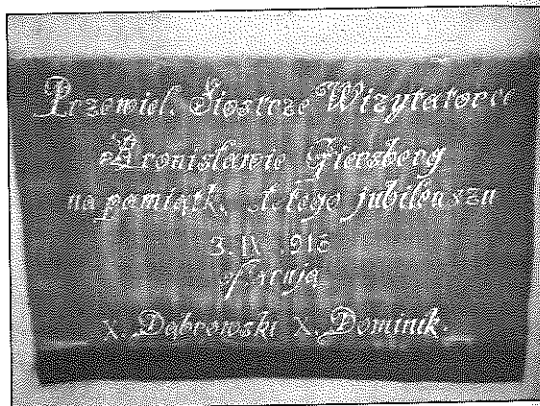 Przewiel. Siostrze Wizytatorce
Bronisławie Giersberg
na pamiątk. jubileuszu
3. IX 916
X. Dąbrowski X. Dominik.